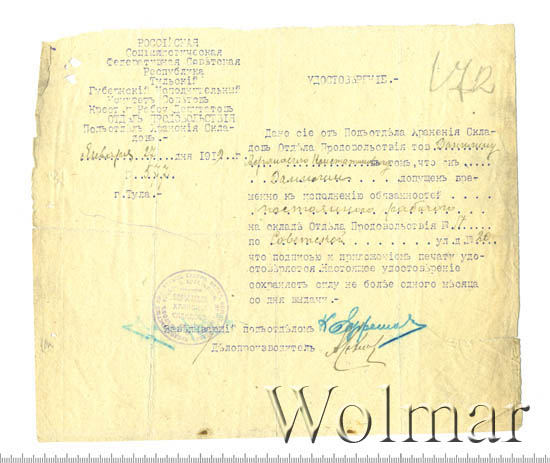 РОССІЙСКАЯ
Соціалистическая
Федеративная Совѣтская
Республика
Тульскій
Губернскій Исполнительный
Комитетъ Совѣтовъ
Крест. и Рабоч. Депутатовъ
ОТДѢЛЪ ПРОДОВОЛЬСТВІЯ
Подъотдѣлъ Храненія Скла-
довъ.
Января 17 дня 191 г.
г. Тула
УДОСТОВѢРЕНІЕ.-
172
Дано сіе отъ Подъотдѣла Храненія Скла-
довъ Отдѣла Продовольствія тов.
въ томъ, что онъ
допущенъ вре-
менно къ исполненію обязанностей
постояннаго рабочаго
на складѣ Отдѣла Продовольствія № 17
по Советской ул. д. №
что подписью и приложеніемъ печати удо-
стовѣряется. Настоящее удостовѣреніе
сохраняетъ силу не болѣе одного мѣсяца
со дня выдачи.-
Завѣдывающій подъотделомъ
Дѣлопроизводитель
Wolmar